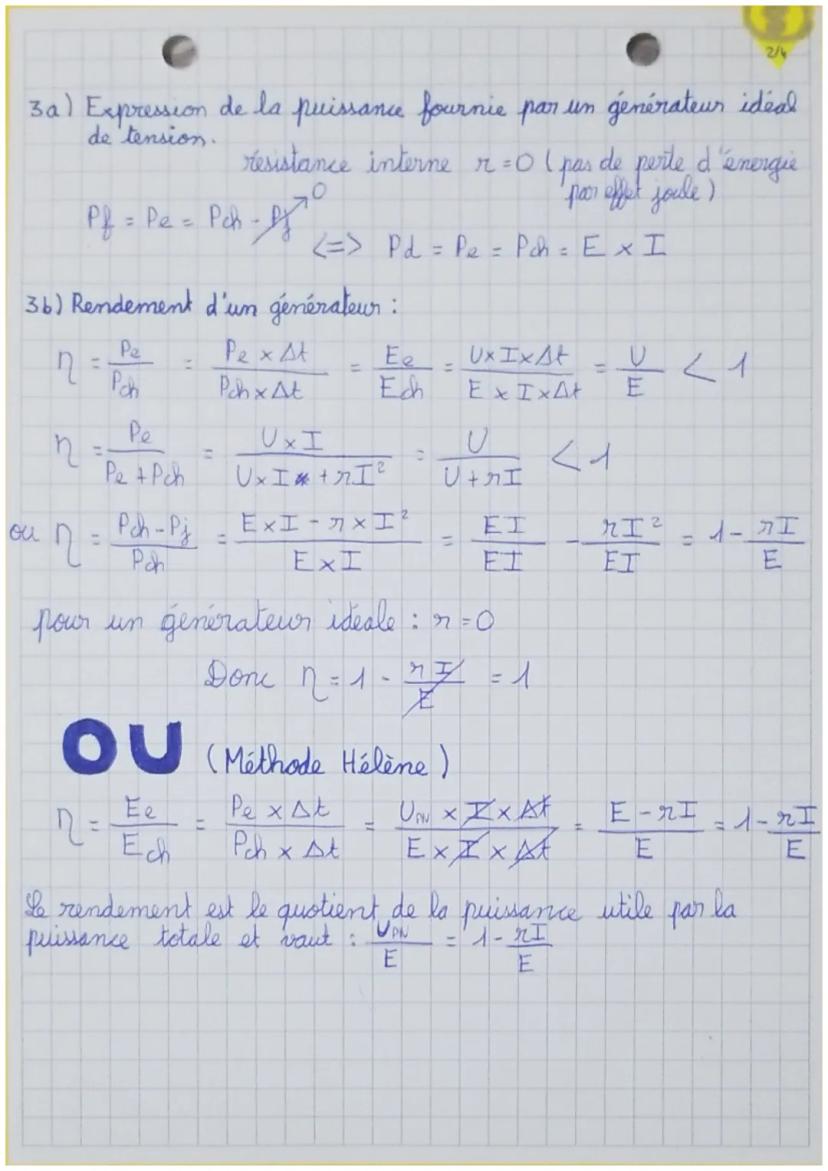 2/4
3a) Expression de la puissance fournie par un générateur idéal
de tension.
résistance interne r = 0 (pas de perte d'énergie
par effet joule)
Pf = Pe = Pch - Pj → 0
<=> Pd = Pe = Pch = E × I
3b) Rendement d'un générateur :
η = Pe / Pch = Pe × Δt / Pch × Δt = Ee / Ech = U × I × Δt / E × I × Δt = U / E < 1
η = Pe / Pe + Pch = U × I / U × I + rI² = U / U + rI < 1
ou η = Pch - Pj / Pch = E × I - r × I² / E × I = EI / EI - rI² / EI = 1 - rI / E
pour un générateur idéale : r = 0
Donc η = 1 - rI / E = 1
OU (Méthode Hélène)
η = Ee / Ech = Pe × Δt / Pch × Δt = UPN × I × Δt / E × I × Δt = E - rI / E = 1 - rI / E
Le rendement est le quotient de la puissance utile par la
puissance totale et vaut : UPN / E = 1 - rI / E